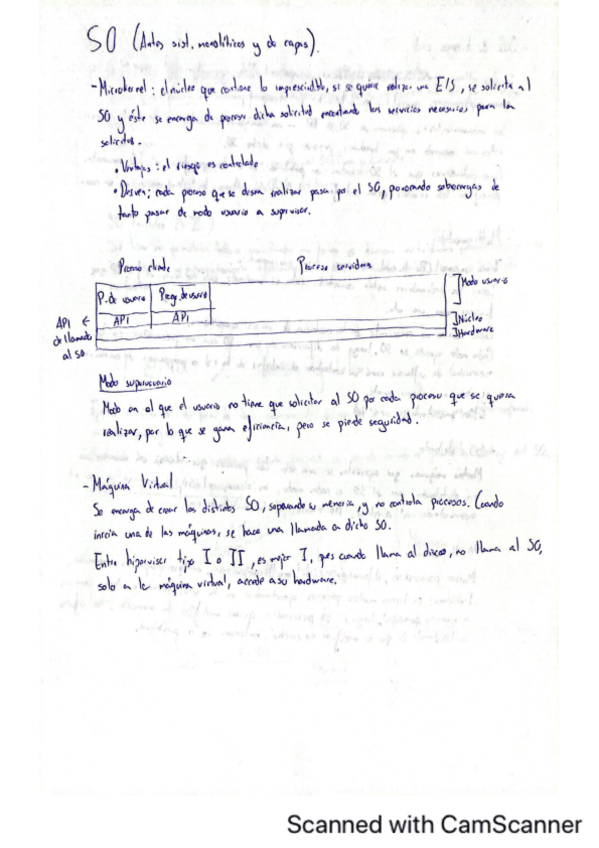 SO (Antes sist. monolíticos y de capas).
- Microkernel: el núcleo que contiene lo imprescindible, si se quiere realizar una E/S, se solicita al
SO y éste se encarga de procesar dicha solicitud encontrando los servicios necesarios para la
solicitud.
• Ventajas: el riesgo es controlado
• Desven; cada proceso que se desea realizar pasa por el SO, provocando sobrecargas de
tanto pasar de modo usuario a supervisor.
Proceso cliente Proceso servidores
P. de usuario Prog. de usuario Modo usuario
API API
API ← de llamada al SO
Núcleo
Hardware
Modo superusuario
Modo en el que el usuario no tiene que solicitar al SO por cada proceso que se quiera
realizar, por lo que se gana eficiencia, pero se pierde seguridad.
- Máquina Virtual
Se encarga de crear los distintos SO, separando su memoria, y no controla procesos. Cuando
inicia una de las máquinas, se hace una llamada a dicho SO.
Entre hipervisor tipo I o II, es mejor I, pues cuando llama al disco, no llama al SO,
solo a la máquina virtual, accede a su hardware.
Scanned with CamScanner